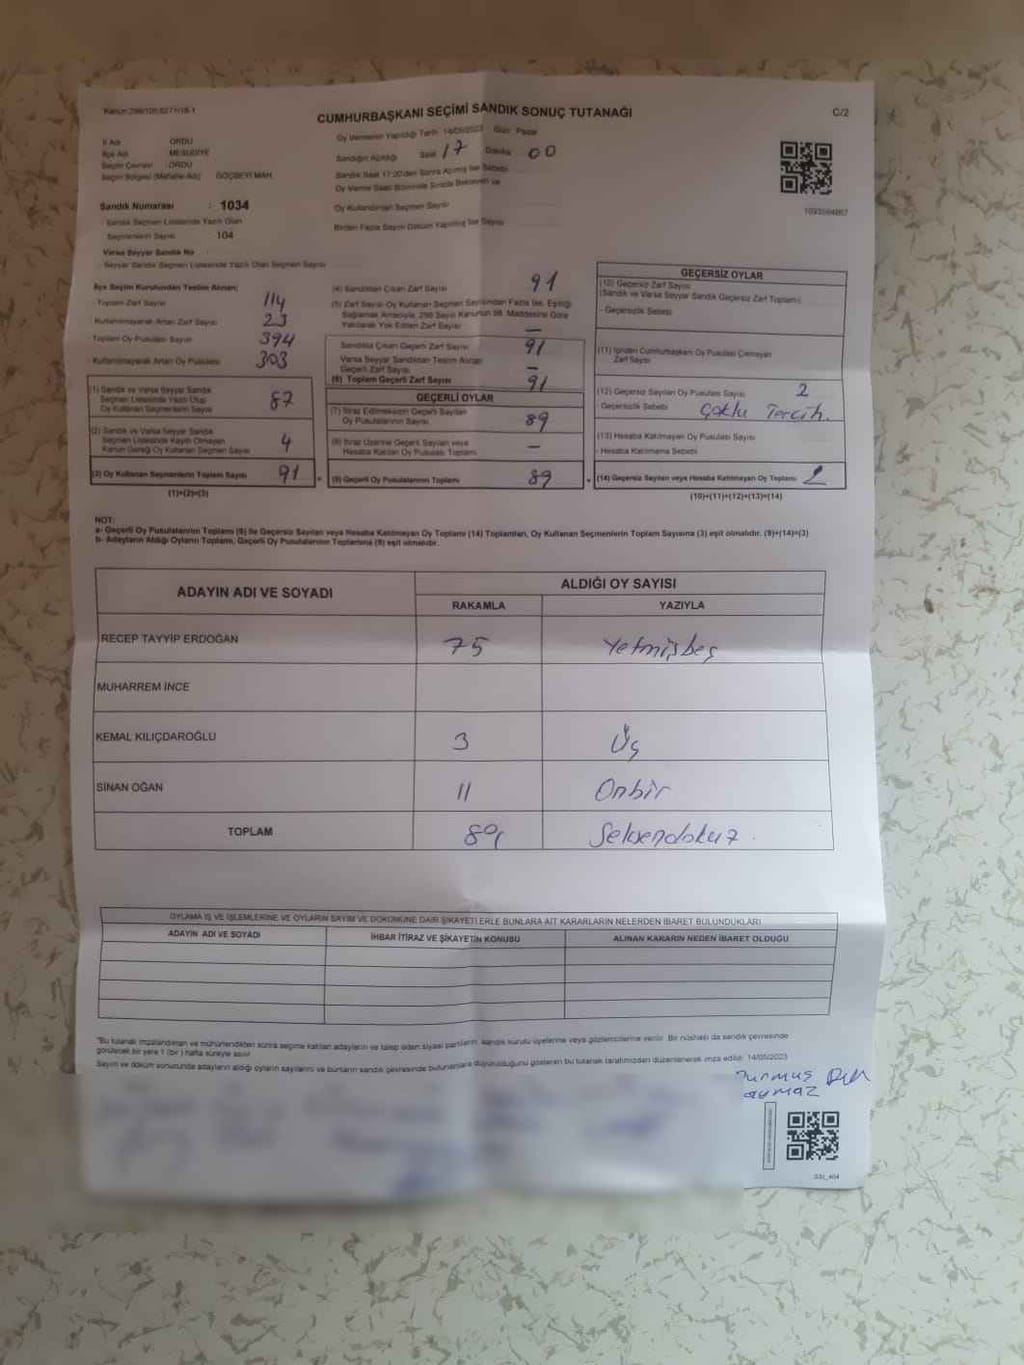 Kanun:298/105;6271/18-1
CUMHURBAŞKANI SEÇİMİ SANDIK SONUÇ TUTANAĞI
C/2
İl Adı ORDU
İlçe Adı MESUDİYE
Seçim Çevresi ORDU
Seçim Bölgesi (Mahalle Adı) GÖÇBEYİ MAH.
Sandık Numarası : 1034
Sandık Seçmen Listesinde Yazılı Olan
Seçmenlerin Sayısı 104
Varsa Seyyar Sandık No
Seyyar Sandık Seçmen Listesinde Yazılı Olan Seçmen Sayısı
Oy Vermenin Yapıldığı Tarih 14/05/2023 Gün Pazar
Sandığın Açıldığı Saat 17 Dakika 00
Sandık Saat 17.00'den Sonra Açılmış İse Sebebi
Oy Verme Saati Bitiminde Sırada Bekleyen ve
Oy Kullandırılan Seçmen Sayısı
Birden Fazla Sayım Döküm Yapılmış İse Sayısı
İlçe Seçim Kurulundan Teslim Alınan;
Toplam Zarf Sayısı 114
Kullanılmayarak Artan Zarf Sayısı 23
Toplam Oy Pusulası Sayısı 394
Kullanılmayarak Artan Oy Pusulası 303
(1) Sandık ve Varsa Seyyar Sandık
Seçmen Listesinde Yazılı Olup
Oy Kullanan Seçmenlerin Sayısı 87
(2) Sandık ve Varsa Seyyar Sandık
Seçmen Listesinde Kayıtlı Olmayan
Kanun Gereği Oy Kullanan Seçmenlerin Sayısı 4
(3) Oy Kullanan Seçmenlerin Toplam Sayısı 91
(1)+(2)=(3)
(4) Sandıktan Çıkan Zarf Sayısı 91
(5) Zarf Sayısı Oy Kullanan Seçmen Sayısından Fazla İse, Eşitliği
Sağlamak Amacıyla, 298 Sayılı Kanunun 98. Maddesine Göre
Yakılarak Yok Edilen Zarf Sayısı –
Sandıkta Çıkan Geçerli Zarf Sayısı 91
Varsa Seyyar Sandıktan Teslim Alınan
Geçerli Zarf Sayısı –
(6) Toplam Geçerli Zarf Sayısı 91
GEÇERLİ OYLAR
(7) İtiraz Edilmeksizin Geçerli Sayılan
Oy Pusulasının Sayısı 89
(8) İtiraz Üzerine Geçerli Sayılan veya
Hesaba Katılan Oy Pusulası Toplamı –
(9) Geçerli Oy Pusulalarının Toplamı 89
GEÇERSİZ OYLAR
(10) Geçersiz Zarf Sayısı
(Sandık ve Varsa Seyyar Sandık Geçersiz Zarf Toplamı)
- Geçersizlik Sebebi
(11) İçinden Cumhurbaşkanı Oy Pusulası Çıkmayan
Zarf Sayısı
(12) Geçersiz Sayılan Oy Pusulası Sayısı 2
- Geçersizlik Sebebi Çoklu Tercih.
(13) Hesaba Katılmayan Oy Pusulası Sayısı
- Hesaba Katılmama Sebebi
(14) Geçersiz Sayılan veya Hesaba Katılmayan Oy Toplamı 2
(10)+(11)+(12)+(13)=(14)
NOT:
a- Geçerli Oy Pusulalarının Toplamı (9) ile Geçersiz Sayılan veya Hesaba Katılmayan Oy Toplamı (14) Toplamları, Oy Kullanan Seçmenlerin Toplam Sayısına (3) eşit olmalıdır. (9)+(14)=(3)
b- Adayların Aldığı Oyların Toplamı, Geçerli Oy Pusulalarının Toplamına (9) eşit olmalıdır.
ADAYIN ADI VE SOYADI
ALDIĞI OY SAYISI
RAKAMLA YAZIYLA
RECEP TAYYİP ERDOĞAN 75 Yetmişbeş
MUHARREM İNCE
KEMAL KILIÇDAROĞLU 3 Üç
SİNAN OĞAN 11 Onbir
TOPLAM 89 Seksendokuz.
OYLAMA İŞ VE İŞLEMLERİNE VE OYLARIN SAYIM VE DÖKÜMÜNE DAİR ŞİKAYETLERLE BUNLARA AİT KARARLARIN NELERDEN İBARET BULUNDUKLARI
ADAYIN ADI VE SOYADI İHBAR İTİRAZ VE ŞİKAYETİN KONUSU ALINAN KARARIN NEDEN İBARET OLDUĞU
"Bu tutanak imzalandıktan ve mühürlendikten sonra seçime katılan adayların ve talep eden siyasi partilerin sandık kurulu üyelerine veya gözlemcilerine verilir. Bir nüshası da sandık çevresinde
görülecek bir yere 1 (bir) hafta süreyle asılır
Sayım ve döküm sonucunda adayların aldığı oyların sayılarını ve bunların sandık çevresinde bulunanlara duyurulduğunu gösteren bu tutanak tarafımızdan düzenlenerek imza edildi. 14/05/2023
Durmuş
aymaz